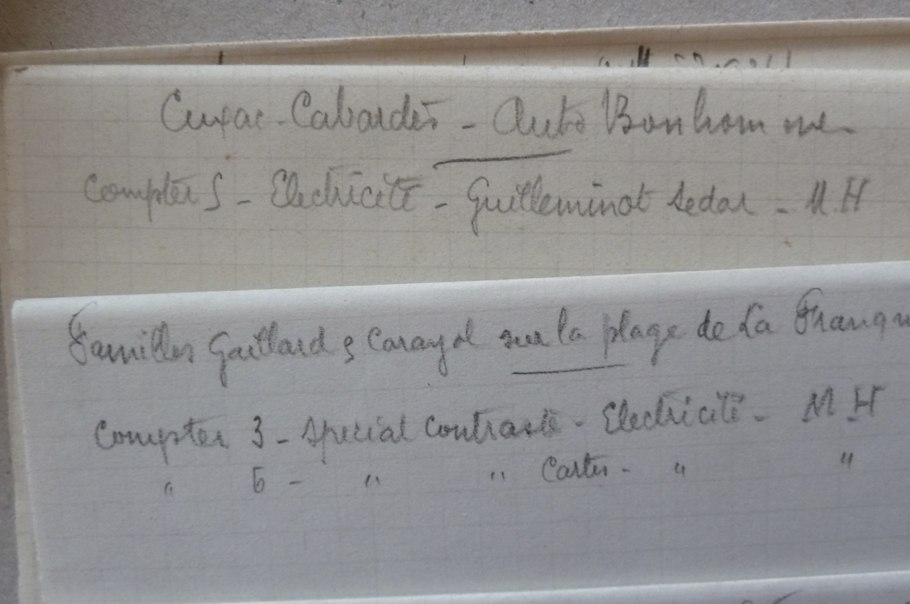 Cuxac-Cabardès - Auto Bonhomme
Compter 5 - Electricité - Guilleminot Sedar - M.H
Familles Gaillard & Carayol sur la plage de La Franqu
Compter 3 - Special contraste - Electricité - M.H
" 5 - " " Cartes - " "